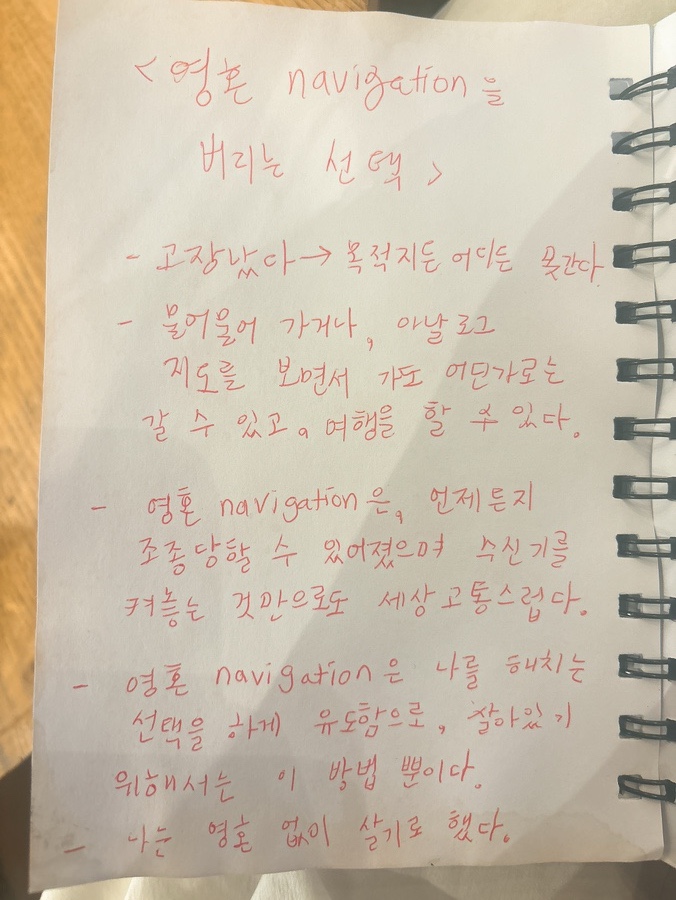 < 영혼 navigation을
버리는 선택 >
- 고장났다 → 목적지든 어디든 못간다.
- 물어물어 가거나, 아날로그
지도를 보면서 가도 어딘가로는
갈 수 있고, 여행을 할 수 있다.
- 영혼 navigation은, 언제든지
조종당할 수 있어졌으며 수신기를
켜놓는 것만으로도 세상 고통스럽다.
- 영혼 navigation은 나를 해치는
선택을 하게 유도함으로, 살아있기
위해서는 이 방법 뿐이다.
- 나는 영혼 없이 살기로 했다.